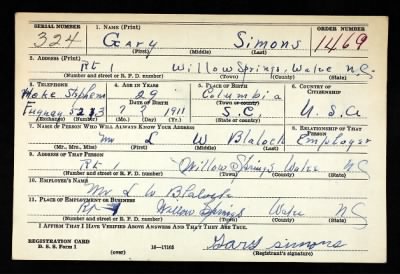 SERIAL NUMBER 1. NAME (Print) ORDER NUMBER
324 Gary Simons 1469
(First) (Middle) (Last)
2. ADDRESS (Print)
Rt 1 Willow Springs, Wake N.C.
(Number and street or R. F. D. number) (Town) (County) (State)
3. TELEPHONE 4. AGE IN YEARS 5. PLACE OF BIRTH 6. COUNTRY OF CITIZENSHIP
29 Columbia
DATE OF BIRTH (Town or county)
Fuquay 5213 7 7 1911 S.C U.S.A
(Exchange) (Number) (Mo.) (Day) (Yr.) (State or country)
7. NAME OF PERSON WHO WILL ALWAYS KNOW YOUR ADDRESS 8. RELATIONSHIP OF THAT PERSON
Mr L W Blalock Employer
(Mr., Mrs., Miss) (First) (Middle) (Last)
9. ADDRESS OF THAT PERSON
Rt 1 Willow Springs Wake NC
(Number and street or R. F. D. number) (Town) (County) (State)
10. EMPLOYER'S NAME
Mr L W Blalogh
11. PLACE OF EMPLOYMENT OR BUSINESS
Willow Springs Wake NC
(Number and street or R. F. D. number) (Town) (County) (State)
I AFFIRM THAT I HAVE VERIFIED ABOVE ANSWERS AND THAT THEY ARE TRUE.
REGISTRATION CARD
D. S. S. Form 1 (over) 16-17105 Gary Simons
(Registrant's signature)